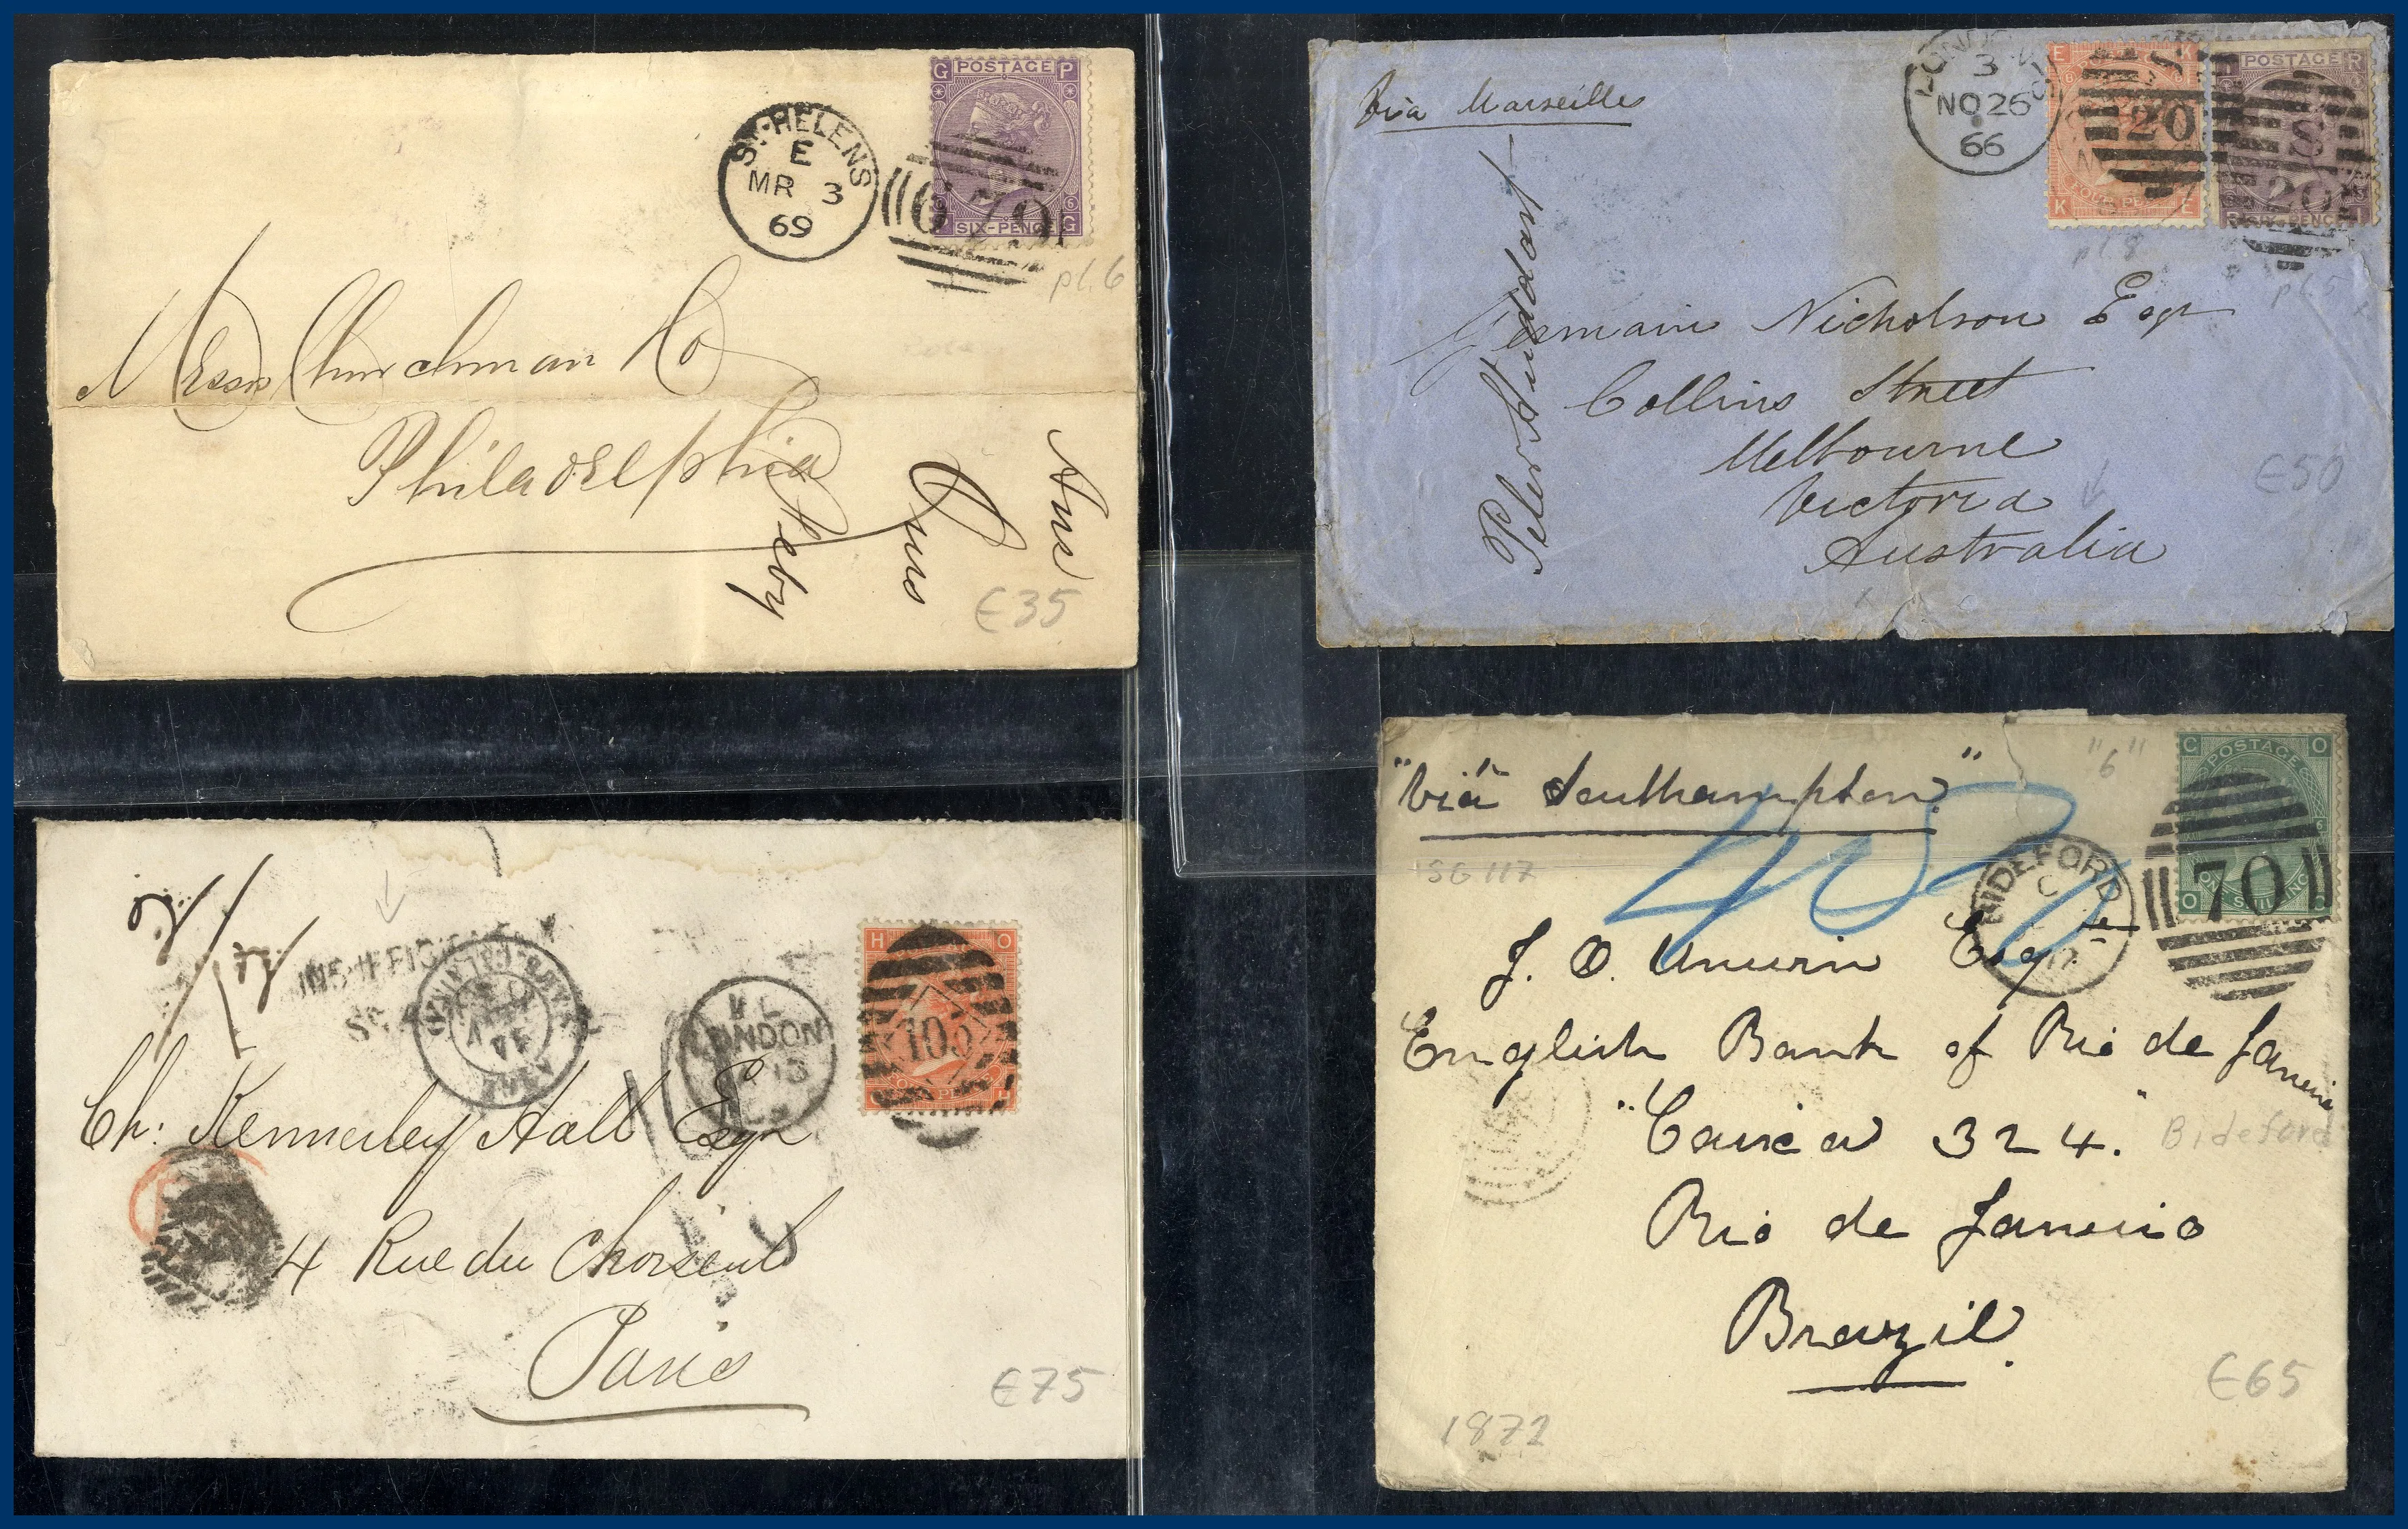 G POSTAGE P
SIX-PENCE G
ST. HELENS
E
MR 3
69
pl.6
Messrs Churchman Co
Philadelphia
£35
Via Marseilles
3
NO 26
66
E K
K E
S
20
POSTAGE R
S
20
SIX-PENCE
pl.8
pl.5
Germain Nicholson Esqr
Collins Street
Melbourne
Victoria
Australia
Peter Studdart
£50
INSUFFICIENTLY
LONDON
H O
105
Ch: Kennerley Hall Esqr
4 Rue du Choiseul
Paris
£75
"Via Southampton"
"6"
SG 117
C POSTAGE O
O ONE SHILLING C
BIDEFORD
C
70
J. O. Unwin Esqre
English Bank of Rio de Janeiro
"Caixa 324."
Bideford
Rio de Janeiro
Brazil.
£65
1872